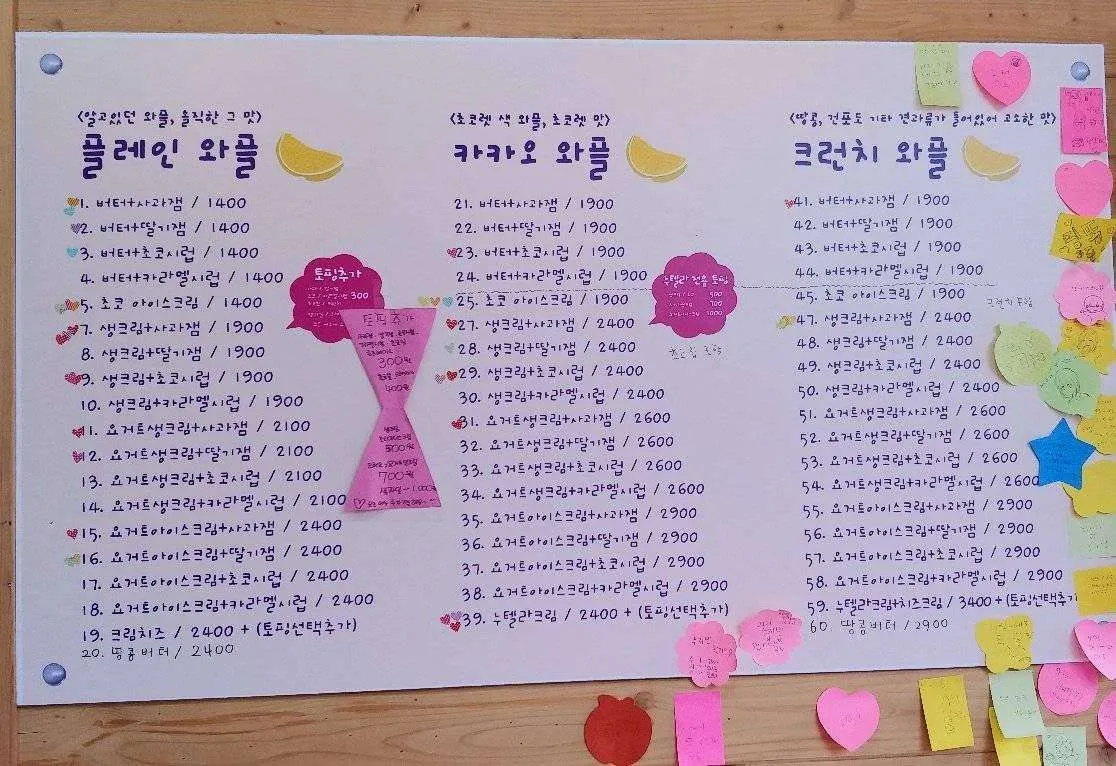 <알고있던 와플, 솔직한 그 맛>
플레인 와플
1. 버터+사과잼 / 1400
2. 버터+딸기잼 / 1400
3. 버터+초코시럽 / 1400
4. 버터+카라멜시럽 / 1400
5. 초코 아이스크림 / 1400
7. 생크림+사과잼 / 1900
8. 생크림+딸기잼 / 1900
9. 생크림+초코시럽 / 1900
10. 생크림+카라멜시럽 / 1900
11. 요거트생크림+사과잼 / 2100
12. 요거트생크림+딸기잼 / 2100
13. 요거트생크림+초코시럽 / 2100
14. 요거트생크림+카라멜시럽 / 2100
15. 요거트아이스크림+사과잼 / 2400
16. 요거트아이스크림+딸기잼 / 2400
17. 요거트아이스크림+초코시럽 / 2400
18. 요거트아이스크림+카라멜시럽 / 2400
19. 크림치즈 / 2400 + (토핑선택추가)
20. 땅콩버터 / 2400
토핑추가
300
토핑추가
300원
400원
500원
700원
<초코렛 색 와플, 초코렛 맛>
카카오 와플
21. 버터+사과잼 / 1900
22. 버터+딸기잼 / 1900
23. 버터+초코시럽 / 1900
24. 버터+카라멜시럽 / 1900
25. 초코 아이스크림 / 1900
27. 생크림+사과잼 / 2400
28. 생크림+딸기잼 / 2400
29. 생크림+초코시럽 / 2400
30. 생크림+카라멜시럽 / 2400
31. 요거트생크림+사과잼 / 2600
32. 요거트생크림+딸기잼 / 2600
33. 요거트생크림+초코시럽 / 2600
34. 요거트생크림+카라멜시럽 / 2600
35. 요거트아이스크림+사과잼 / 2900
36. 요거트아이스크림+딸기잼 / 2900
37. 요거트아이스크림+초코시럽 / 2900
38. 요거트아이스크림+카라멜시럽 / 2900
39. 누텔라크림 / 2400 + (토핑선택추가)
누텔라 전용 토핑
500
700
1000
<땅콩, 건포도 기타 견과류가 들어있어 고소한 맛>
크런치 와플
41. 버터+사과잼 / 1900
42. 버터+딸기잼 / 1900
43. 버터+초코시럽 / 1900
44. 버터+카라멜시럽 / 1900
45. 초코 아이스크림 / 1900
47. 생크림+사과잼 / 2400
48. 생크림+딸기잼 / 2400
49. 생크림+초코시럽 / 2400
50. 생크림+카라멜시럽 / 2400
51. 요거트생크림+사과잼 / 2600
52. 요거트생크림+딸기잼 / 2600
53. 요거트생크림+초코시럽 / 2600
54. 요거트생크림+카라멜시럽 / 2600
55. 요거트아이스크림+사과잼 / 2900
56. 요거트아이스크림+딸기잼 / 2900
57. 요거트아이스크림+초코시럽 / 2900
58. 요거트아이스크림+카라멜시럽 / 2900
59. 누텔라크림+치즈크림 / 3400 + (토핑선택추가)
60. 땅콩버터 / 2900